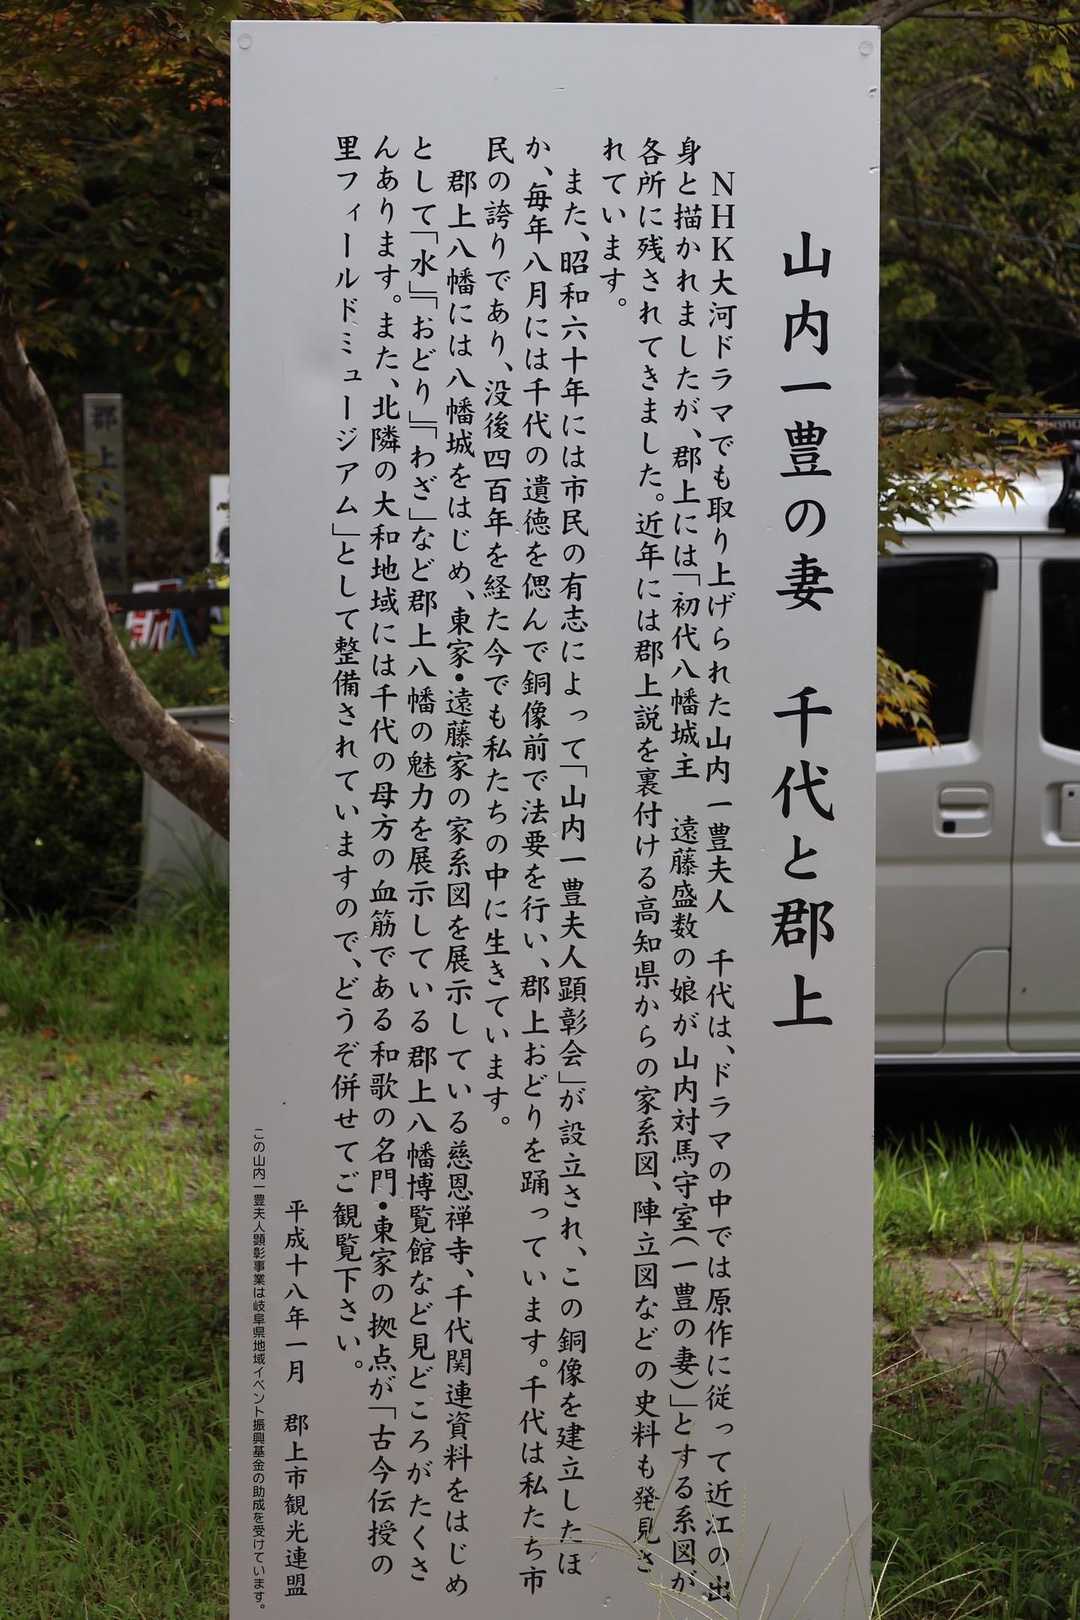 山内一豊の妻　千代と郡上
ＮＨＫ大河ドラマでも取り上げられた山内一豊夫人　千代は、ドラマの中では原作に従って近江の出
身と描かれましたが、郡上には「初代八幡城主　遠藤盛数の娘が山内対馬守室（一豊の妻）」とする系図が
各所に残されてきました。近年には郡上説を裏付ける高知県からの家系図、陣立図などの史料も発見さ
れています。
また、昭和六十年には市民の有志によって「山内一豊夫人顕彰会」が設立され、この銅像を建立したほ
か、毎年八月には千代の遺徳を偲んで銅像前で法要を行い、郡上おどりを踊っています。千代は私たち市
民の誇りであり、没後四百年を経た今でも私たちの中に生きています。
郡上八幡には八幡城をはじめ、東家・遠藤家の家系図を展示している慈恩禅寺、千代関連資料をはじめ
として「水」「おどり」「わざ」など郡上八幡の魅力を展示している郡上八幡博覧館など見どころがたくさ
んあります。また、北隣の大和地域には千代の母方の血筋である和歌の名門・東家の拠点が「古今伝授の
里フィールドミュージアム」として整備されていますので、どうぞ併せてご観覧下さい。
平成十八年一月　郡上市観光連盟
この山内一豊夫人顕彰事業は岐阜県地域イベント振興基金の助成を受けています。
郡上八幡